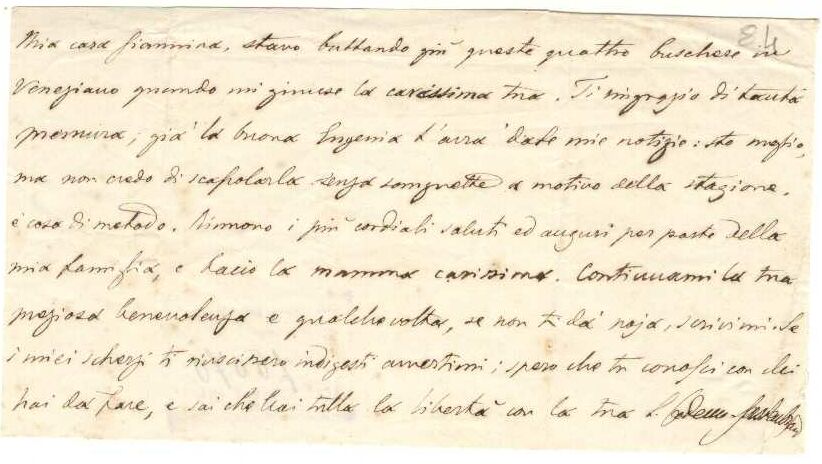 43
Mia cara Giannina, stavo buttando giù queste quattro buschere in
Veneziano quando mi giunse la carissima tua. Ti ringrazio di tanta
premura; già la buona Eugenia t'avrà date mie notizie: sto meglio,
ma non credo di scapolarla senza sanguette a motivo della stagione.
è cosa di metodo. Rinnovo i più cordiali saluti ed auguri per parte della
mia famiglia, e bacio la mamma carissima. Continuami la tua
preziosa benevolenza e qualche volta, se non ti dà noja, scrivimi. Se
i miei scherzi ti riuscissero indigesti avvertimi; spero che tu conosci con chi
hai da fare, e sai che hai tutta la libertà con la tua